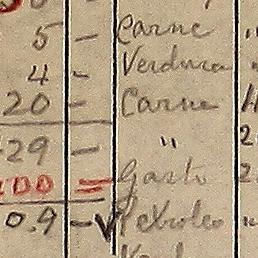 5 - Carne "
4 - Verdura "
20 - Carne
29 - "
00 = Gasto 2
0.9 - Petroleo "